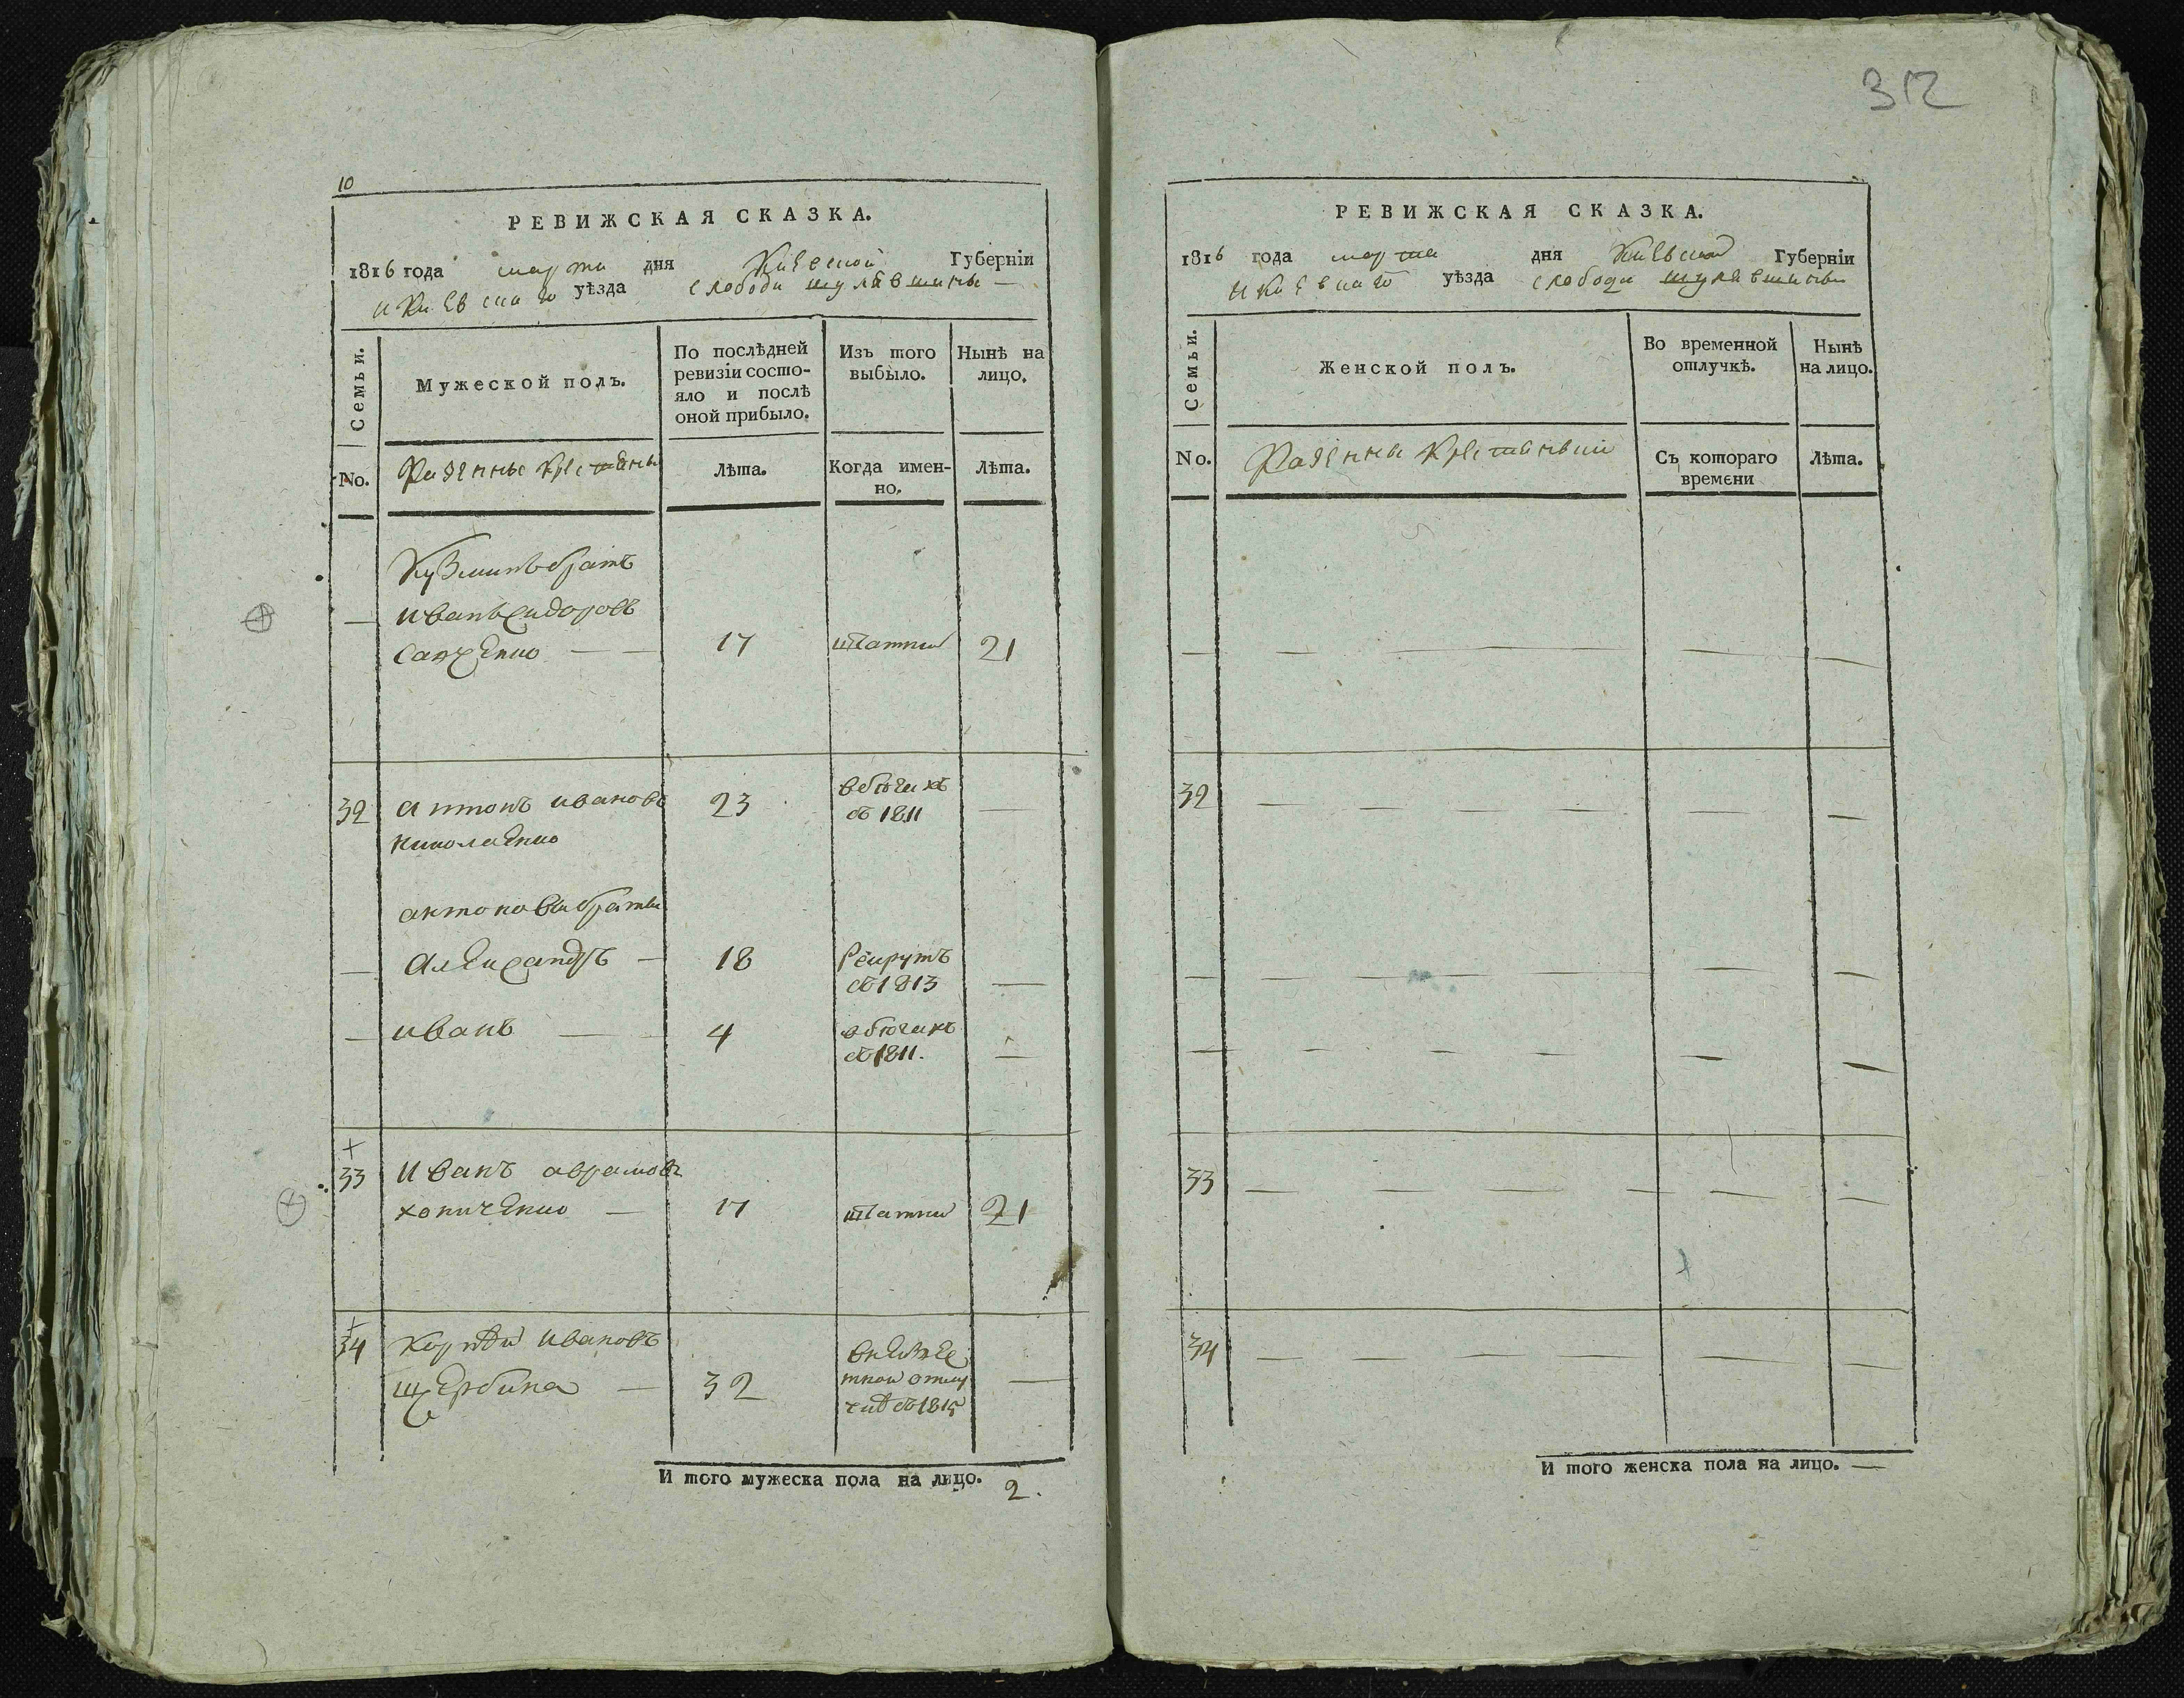 312
10
РЕВИЖСКАЯ СКАЗКА.
1816 года марта дня Киевской Губерніи
и Киевскаго уѣзда слободи шулявшины —
Семьи.
Мужеской полъ.
По послѣдней
ревизіи состо-
яло и послѣ
оной прибыло.
Изъ того
выбыло.
Нынѣ на
лицо.
No.
Казенные крестяны
Лѣта.
Когда имен-
но.
Лѣта.
Кузминъ братъ
иванъ сидоровъ
— 17 штатни 21
32 антонъ ивановъ 23 вбѣгахъ —
николаенко съ 1811
антоновы братьи
— Александръ — 18 Рекрутъ
съ 1813 —
— иванъ — 4 вбѣгахъ
съ 1811. —
33 Иванъ аврамовъ
— 17 штатни 21
34 ивановъ
щербина — 32 —
съ 1815
И того мужеска пола на лицо. 2.
РЕВИЖСКАЯ СКАЗКА.
1816 года марта дня Киевской Губерніи
и Киевскаго уѣзда слободи шулявшины
Семьи.
Женской полъ.
Во временной
отлучкѣ.
Нынѣ
на лицо.
No.
Казенные крестянкии
Съ котораго
времени
Лѣта.
— — — — —
32 — — — — — —
— — — — — —
— — — — — —
33 — — — — — —
34 — — — — — —
И того женска пола на лицо. —